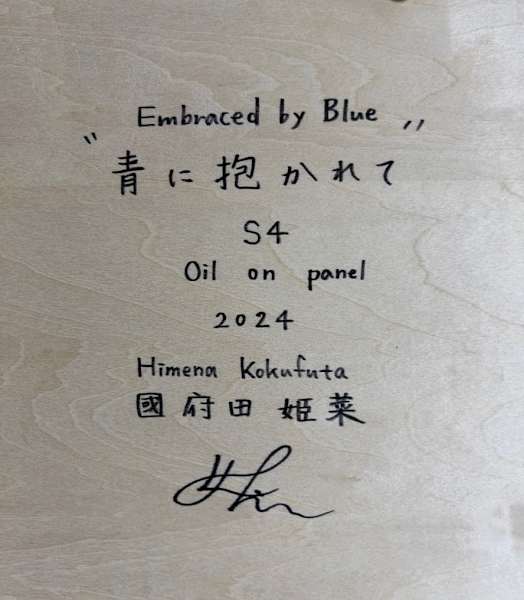 Embraced by Blue
"青に抱かれて"
S4
Oil on panel
2024
Himena Kokufuta
國府田 姫菜